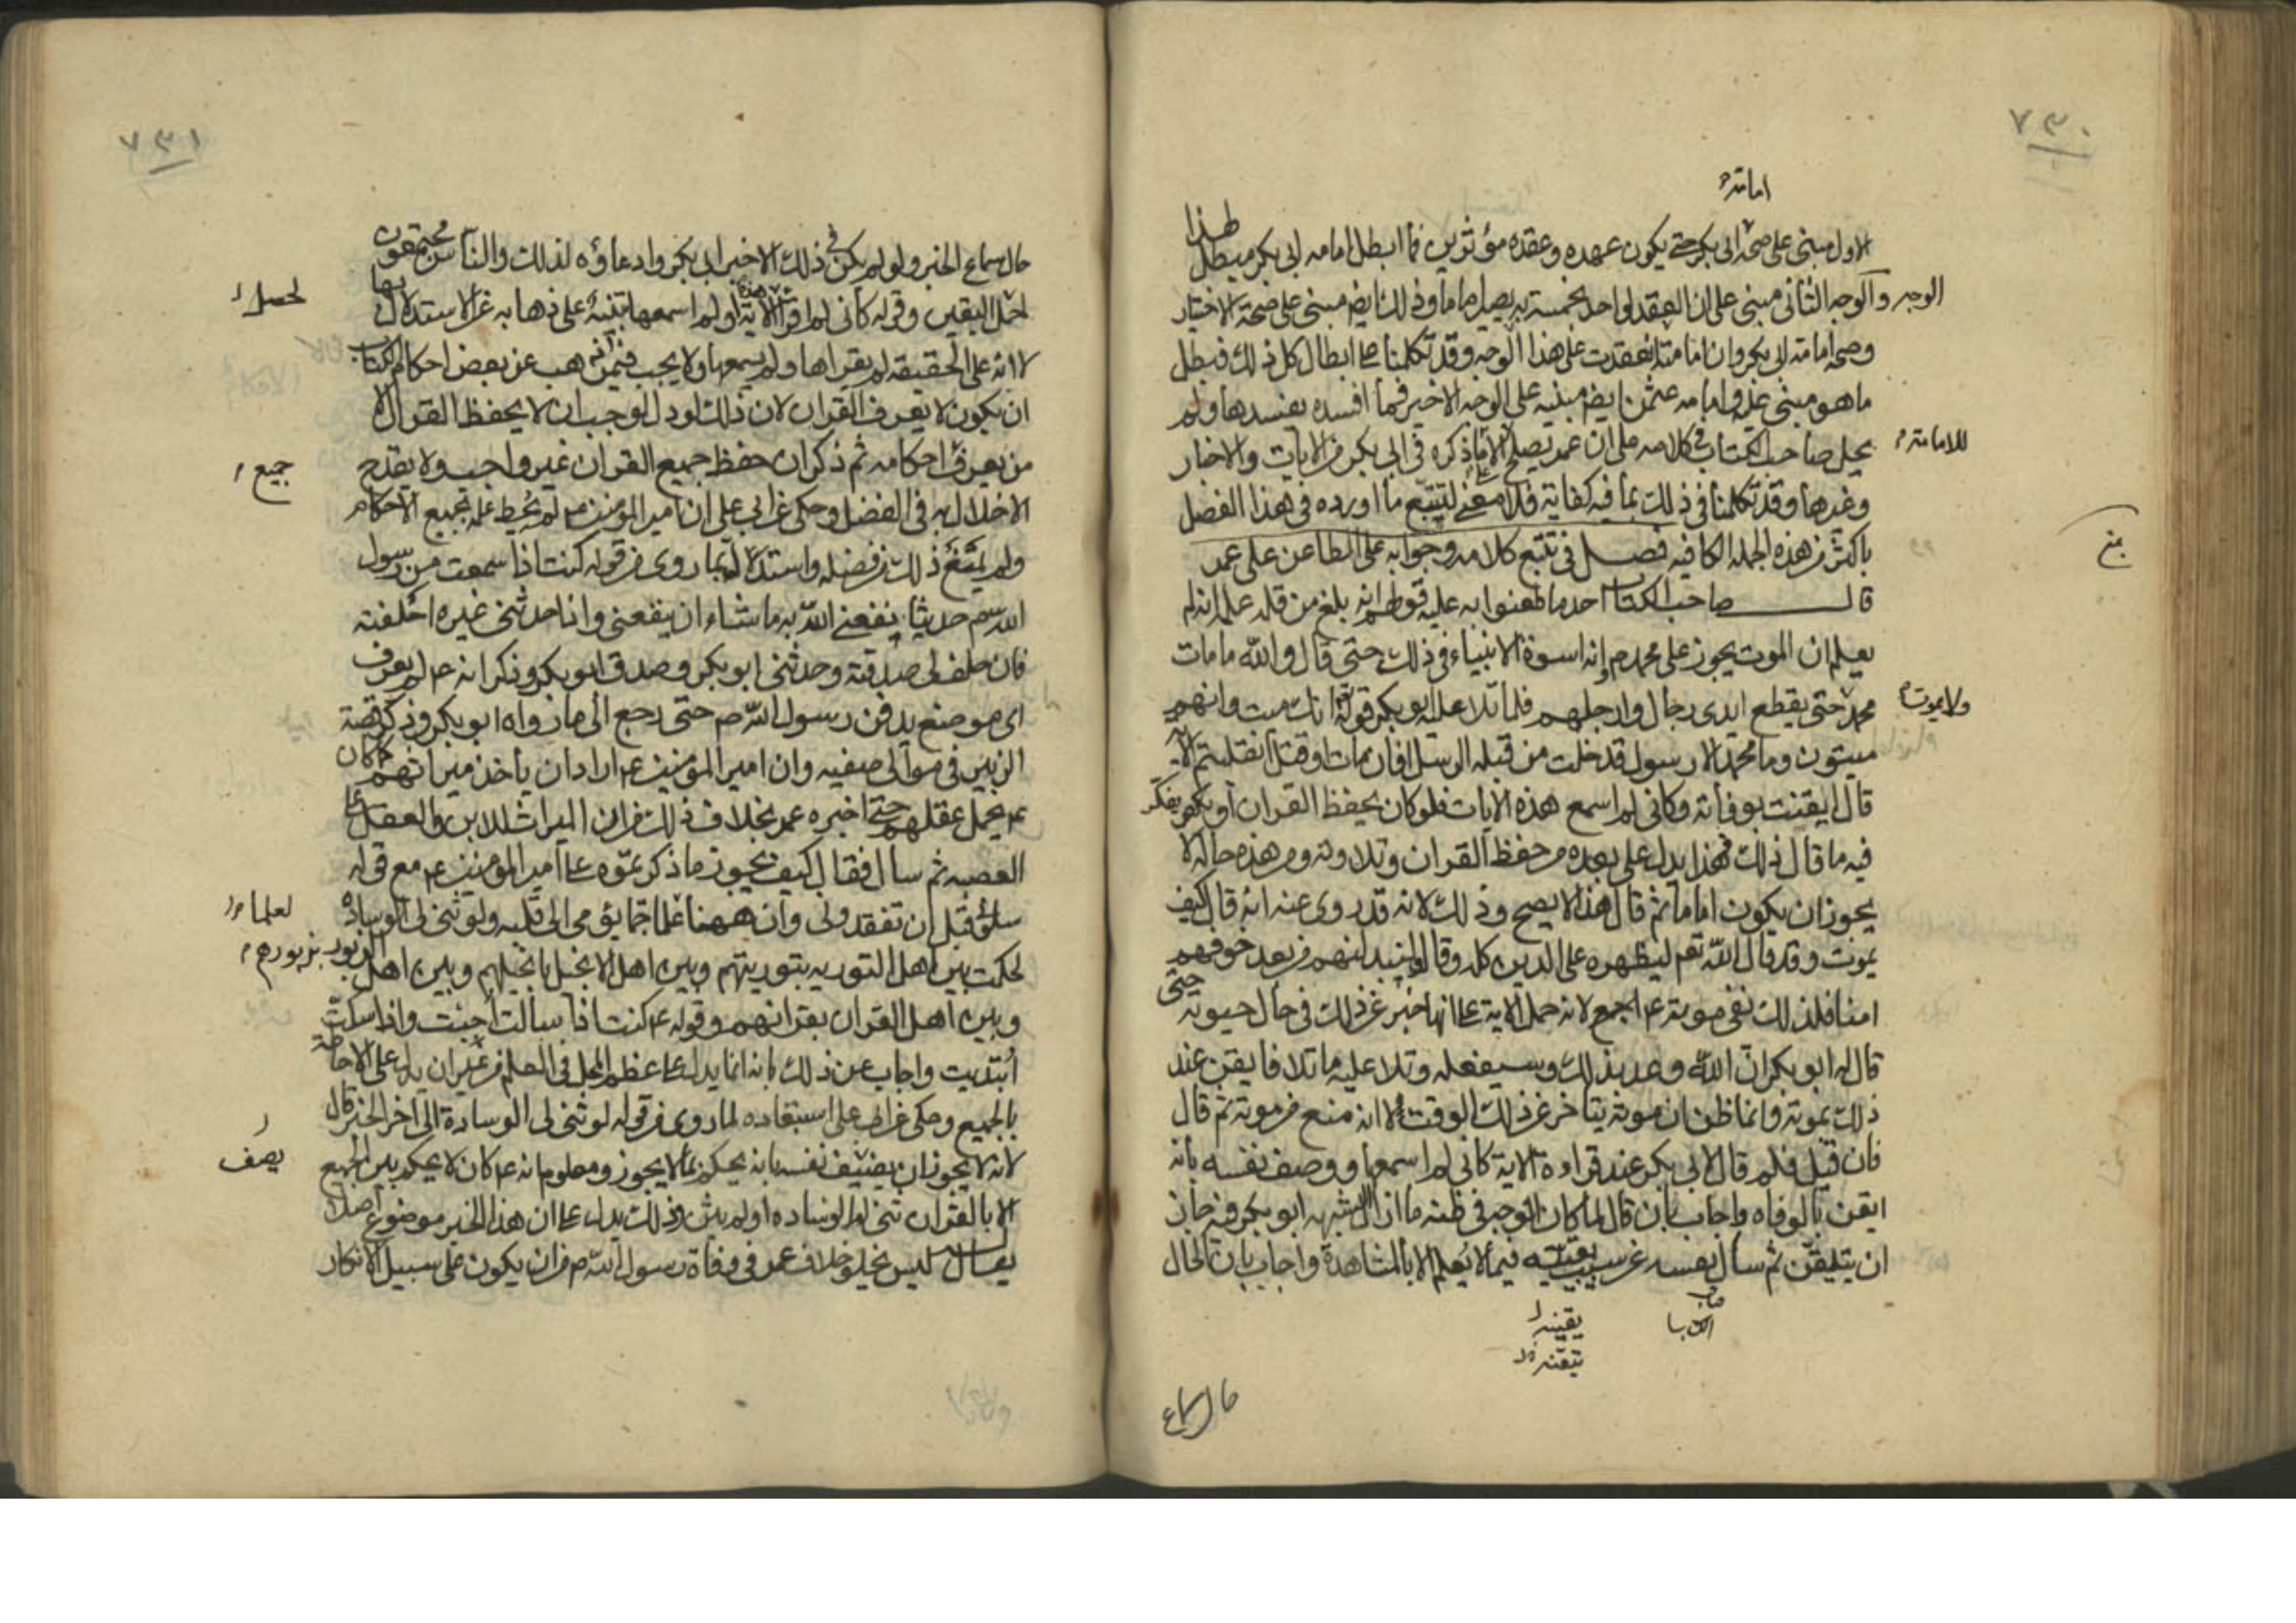 ٧٣٠
امامة
الاول مبنى على صحة ابى بكر حتى يكون عهده وعقده مؤثرين فما ابطل امامه ابى بكر مبطل لهذا
الوجه والوجه الثانى مبنى على ان العقد لواحد بخمسة به يصير اماما وذلك ايضا مبنى على صحة الاختيار
وصحة امامته ابى بكر وان امامته انعقدت على هذا الوجه وقد تكلمنا على ابطال كل ذلك فبطل
ما هو مبنى عليه وامامه عثمن ايضا مبنيه على الوجه الاخير فما افسده يفسدها ولم
يحل صاحب الكتاب فى كلامه على ان عمر يصلح الا ما ذكره فى ابى بكر من الايات والاخبار
للامامة
وغيرها وقد تكلمنا فى ذلك بما فيه كفاية فلا معنى لتتبع ما اورده فى هذا الفصل
باكثر من هذه الجمله الكافيه فصل فى تتبع كلامه وجوابه على الطاعن على عمر
قال صاحب الكتاب احد ما طعنوا به عليه قولهم انه بلغ من قلة علمه انه لم
يعلم ان الموت يجوز على محمد ص وانه اسوة الانبياء فى ذلك حتى قال والله ما مات
محمد حتى يقطع ايدى رجال وارجلهم فلما تلا عليه ابو بكر قوله تع انك ميت وانهم
ولا يموت
ميتون وما محمد الا رسول قد خلت من قبله الرسل افان مات او قتل انقلبتم الآية
قال ايقنت بوفاته وكانى لم اسمع هذه الايات فلو كان يحفظ القران او يفكر
فيه ما قال ذلك فهذا يدل على بعده من حفظ القران وتلاوته ومن هذه حاله لا
يجوز ان يكون اماما ثم قال هذا لا يصح وذلك لانه قد روى عنه انه قال كيف
يموت وقد قال الله تع ليظهره على الدين كله وقال وليبدلنهم من بعد خوفهم
امنا فلذلك نفى موته ع اجمع لانه حمل الاية على انها خبر عن ذلك فى حال حيوته حتى
قال له ابو بكر ان الله وعد بذلك وسيفعله وتلا عليه ما تلا فايقن عند
ذلك بموته وانما ظن ان موته يتاخر عن ذلك الوقت لا انه منع من موته ثم قال
فان قيل فلم قال لابى بكر عند قراءة الاية كانى لم اسمعها ووصف نفسه بانه
ايقن بالوفاه واجاب بان قال لما كان الوجه فى ظنه ما ازال الشبهه ابو بكر فيه جاز
ان يتيقن ثم سال نفسه عن سبب يقينه فيما لا يعلم الا بالمشاهدة واجاب بان قال
يقينه
تيقنه
حال سماع
٧٣١
حال سماع الخبر ولو لم يكن فى ذلك الا خبر ابى بكر وادعاؤه لذلك والناس مجتمعون
لحصل اليقين وقوله كانى لم اقرا هذه الاية او لم اسمعها تنبيه على ذهابه عن الاستدلال بها
لحصل
لا انه على الحقيقة لم يقراها ولم يسمعها ولا يجب فيمن ذهب عن بعض احكام كتاب
ان يكون لا يعرف القران لان ذلك لو دل لوجب ان لا يحفظ القران الا
من يعرف احكامه ثم ذكر ان حفظ جميع القران غير واجب ولا يقدح
جميع
الاخلال به فى الفضل وحكى عن ابى على ان امير المؤمنين ع لم يحط علمه بجميع الاحكام
ولم يمنع ذلك من فضله واستدلاله بما روى من قوله كنت اذا سمعت من رسول
الله ص حديثا ينفعنى الله به ما شاء ان ينفعنى واذا حدثنى غيره احلفته
فان حلف لى صدقته وحدثنى ابو بكر وصدق ابو بكر وذكر انه ع لم يعرف
اى موضع يدفن رسول الله ص حتى رجع الى ما رواه ابو بكر وذكر قصة
الزبير فى موالى صفيه وان امير المؤمنين ع اراد ان ياخذ ميراثهم كما كان
ع يحمل عقلهم حتى اخبره عمر بخلاف ذلك من ان الميراث للابن والعقل على
العصبه ثم سال فقال كيف يجوز ما ذكرتموه على امير المؤمنين ع مع قوله
سلونى قبل ان تفقدونى وان ههنا علما جما يؤمى الى قلبه ولو ثنى لى الوساده
لعلما
لحكمت بين اهل التوريه بتوريتهم وبين اهل الانجيل بانجيلهم وبين اهل الزبور بزبورهم
وبين اهل القران بقرانهم وقوله ع كنت اذا سالت اجبت واذا سكت
ابتديت واجاب عن ذلك بانه انما يدل على عظم المحل فى العلم من غير ان يدل على الاحاطة
بالجميع وحكى عن ابى على استبعاده لما روى من قوله لو ثنى لى الوسادة الى اخر الخبر قال
لانه لا يجوز ان يضيف نفسه بانه يحكم بما لا يجوز ومعلوم انه ع كان لا يحكم بين الجميع
يصف
الا بالقران ثنى له الوساده او لم يثن وذلك يدل على ان هذا الخبر موضوع
يقال ليس يخلو خلاف عمر فى وفاة رسول الله ص من ان يكون على سبيل الانكار